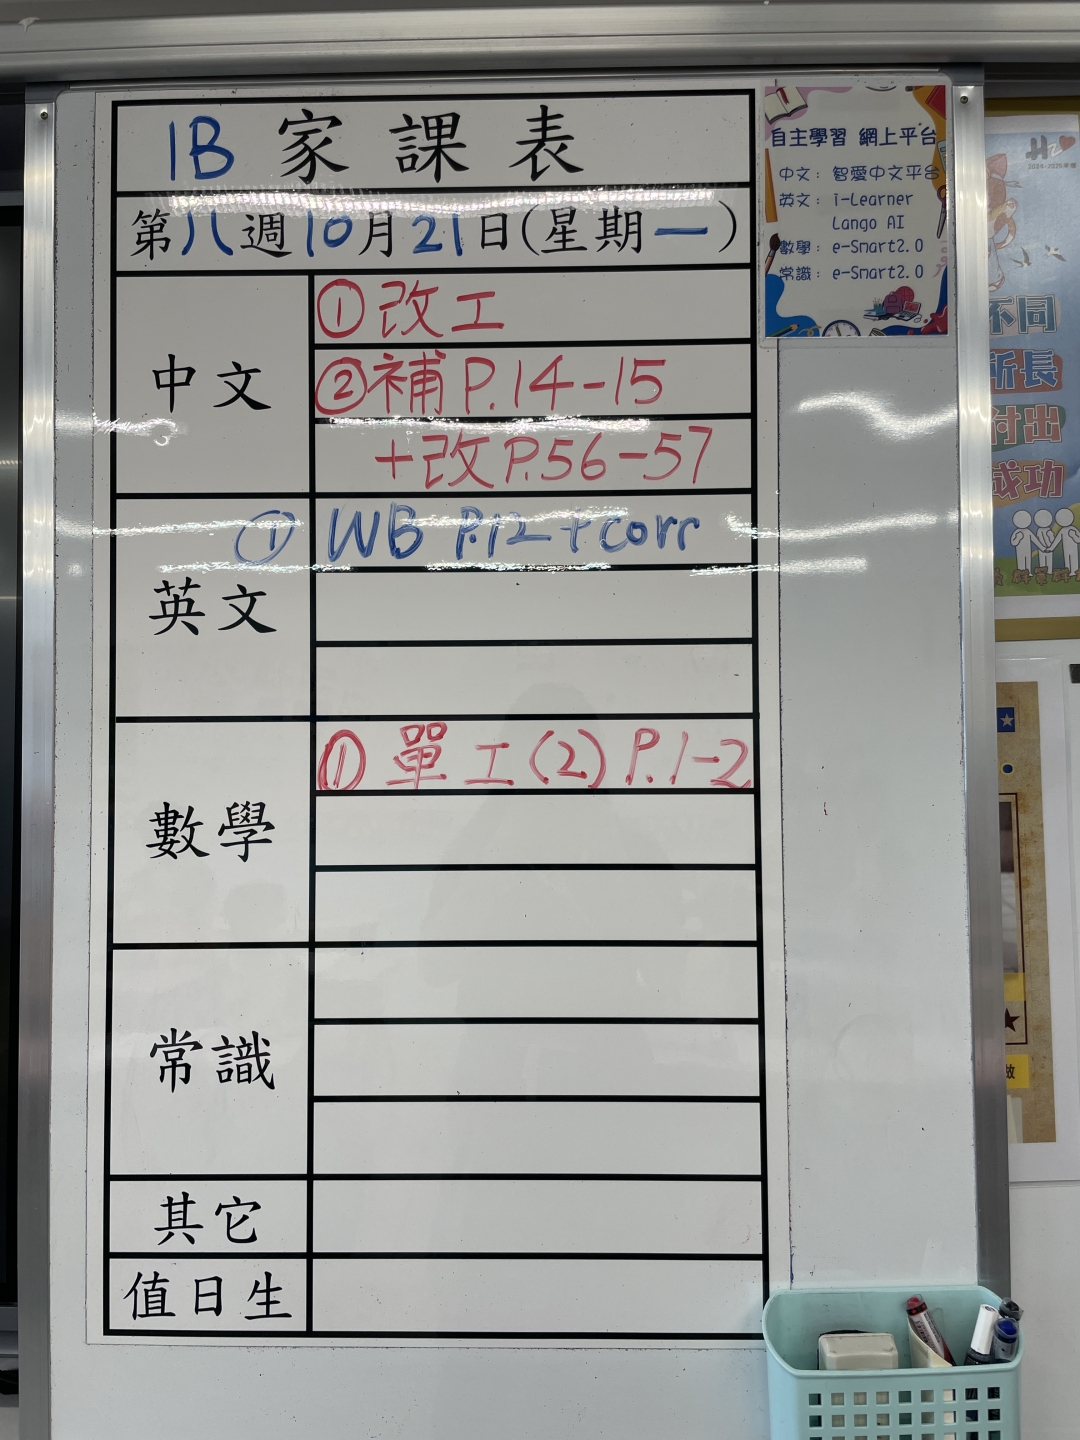 1B 家課表
第八週10月21日(星期一)
中文
①改工
②補P.14-15
+改P.56-57
英文
① WB P.12 + corr
數學
① 單工(2) P.1-2
常識
其它
值日生
自主學習 網上平台
中文：智愛中文平台
英文：i-Learner
Lango AI
數學：e-Smart2.0
常識：e-Smart2.0
不同
所長
付出
成功